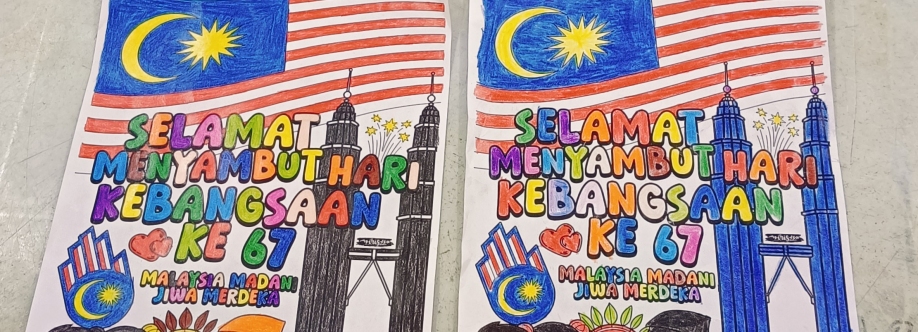 SELAMAT
MENYAMBUT HARI
KEBANGSAAN
KE 67
MALAYSIA MADANI
JIWA MERDEKA
SELAMAT
MENYAMBUT HARI
KEBANGSAAN
KE 67
MALAYSIA MADANI
JIWA MERDEKA